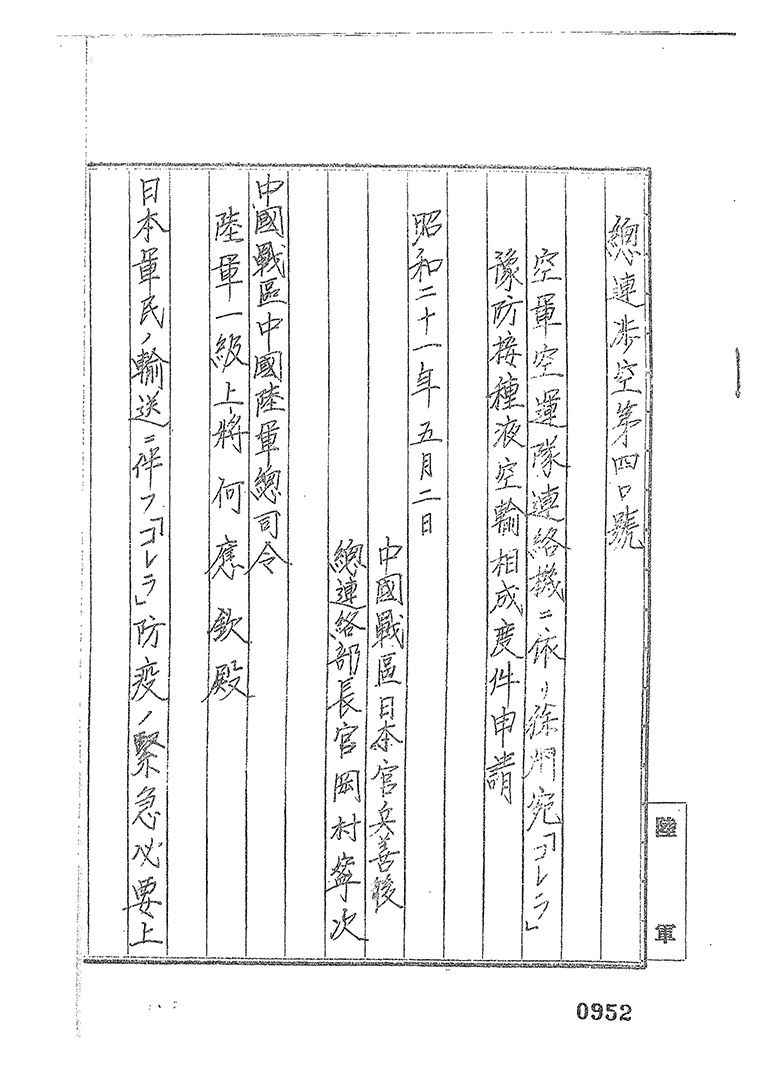 總連涉空第四〇號
空軍空運隊連絡機ニ依リ徐州宛「コレラ」
豫防接種液空輸相成度件申請
昭和二十一年五月二日
中國戰區日本官兵善後
總連絡部長官岡村寧次
中國戰區中國陸軍總司令
陸軍一級上將何應欽殿
日本軍民ノ輸送ニ伴フ「コレラ」防疫ノ緊急必要上
陸軍
0952